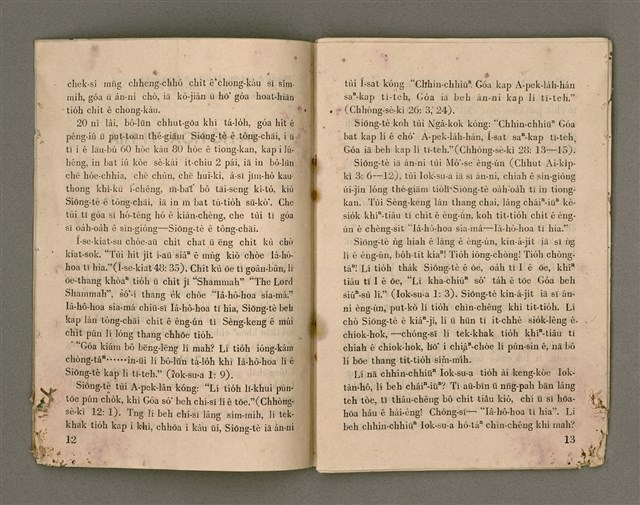 chek-sì mn̄g chheng-chhó chit ê chong-kàu sī sím-
mih, góa ū án-ni chò, iā kò-jiân ū hō͘ góa hoat-hiān
tio̍h chit ê chong-kàu.
20 nî lâi, bô-lūn chhut-gōa khì tá-lo̍h, góa hit ê
pêng-iú ū put-toān thè-giām Siōng-tè ê tông-chāi, i ū
tī i ê lāu-bú 60 hòe kàu 80 hòe ê tiong-kan, kap i lú-
hêng, in bat iû kòe sè-kài it-chiu 2 pái, iā in bô-lūn
chē hóe-chhia, chē chûn, chē hui-ki, á-sī jīm-hô kau-
thong khì-kū î-chêng, m̄-bat bô tāi-seng kî-tó, kiû
Siōng-tè ê tông-chāi, iā in m̄ bat tú-tio̍h sū-kò͘. Che
túi tī góa sī hó-téng hó ê kiàn-chèng, che túi tī góa
sī oa̍h-oa̍h ê sìn-gióng—Siōng-tè ê tông-chāi.
Í-se-kiat-su chōe-āu chit chat ū êng chit kù chò
kiat-sok, “Túi hit ji̍t í-āu siâⁿ ê mn̂g kiò chòe Iâ-hô-
hoa tī hia.”(Í-se-kiat 48: 35). Chit kù òe tī goân-bûn, lí
òe-thang khòaⁿ tio̍h ū chit jī “Shammah” “The Lord
Shammah”, só͘-í thang e̍k chòe “Iâ-hô-hoa sia-má.”
Iâ-hô-hoa sia-má chiū-sī Iâ-hô-hoa tī hia, Siōng-tè beh
kap lán tông-chāi chit ê èng-ún tī Sèng-keng ê múi
chit pún lí lóng thang chhōe tio̍h.
“Góa kiám bô bēng-lēng lí mah? Lí tio̍h ióng-kám
chòng-táⁿ……in-ūi lí bô-lūn tá-lo̍h khì Iâ-hô-hoa lí ê
Siōng-tè kap lí tī-teh.” (Iok-su-a 1: 9).
Siōng-tè túi A-pek-lân kóng: “Lí tio̍h lī-khui pún-
tōe pún cho̍k, khì Góa só͘ beh chí-sī lí ê tōe.”(Chhòng-
sè-kì 12: 1). Tng lí beh chí-sī lâng sím-mih, lí tek-
khak tio̍h kap i khì, chhōa i kàu ūi, Siōng-tè iā án-ni
12
túi Í-sat kóng “Chhin-chhiūⁿ Góa kap A-pek-la̍h-hán
saⁿ-kap tī-teh, Góa iā beh án-ni kap lí tī-teh.”
(Chhòng-sè-kì 26: 3, 24).
Siōng-tè koh túi Ngá-kok kóng: “Chhin-chhiūⁿ Góa
bat kap lí ê chó͘ A-pek-la̍h-hán, Í-sat saⁿ-kap tī-teh,
Góa iā beh kap lí tī-teh.”(Chhòng-sè-kì 28: 13—15).
Siōng-tè iā án-ni túi Mô͘-se èng-ún (Chhut Ai-ki̍p-
kì 3: 6—12), túi Iok-su-a iā sī án-ni, chiah ê sin-gióng
úi-jîn lóng thé-giām tio̍h Siōng-tè oa̍h-oa̍h tī in tiong-
kan. Túi Sèng-keng lán thang chai, lâng cháiⁿ-iūⁿ kè-
sio̍k khiⁿ-tiâu tī chit ê èng-ún, koh tit-tio̍h chit ê èng-
ún ê chèng-sit “Iâ-hô-hoa sia-má—Iâ-hô-hoa tī hia.”
Siōng-tè ǹg hiah ê lâng ê èng-ún, kin-á-ji̍t iā sī ǹg
lí ê èng-ún, bo̍h-tit kiaⁿ! Tio̍h ióng-chòng! Tio̍h chòng-
táⁿ! Lí tio̍h tha̍k Siōng-tè ê ōe, oa̍h tī I ê ōe, khiⁿ
tiâu tī I ê ōe, “Lí kha-chiúⁿ só͘ ta̍h ê tōe Góa beh
siúⁿ-sù lí.” (Iok-su-a 1: 3). Siōng-tè kin-á-ji̍t iā sī án-
ni èng-ún, put-kò lí tio̍h chìn-chêng khì tit-tio̍h. Lí
chò Siōng-tè ê kiáⁿ-jî, lí ū hūn tī it-chhè sio̍k-lêng ê
chiok-hok, —chóng-sī lí tek-khak tio̍h khiⁿ-tiâu tī
chiah ê chiok-hok, hō͘ i chiâⁿ-chòe lí pún-sin ê, nā bô
lí bōe thang tit-tio̍h sím-mih.
Lí nā chhin-chhiūⁿ Iok-su-a tio̍h ài keng-kòe Iok-
tàn-hô, lí beh cháiⁿ-iūⁿ? Tī aū-bīn ū n̄g-pah bān lâng
teh tòe, tī thâu-chêng bô chit tiâu kiô, chí ū sī hóa-
hóa háu ê hái-éng! Chóng-sī— “Iâ-hô-hoa tī hia”. Lí
beh chhin-chhiūⁿ Iok-su-a hó-táⁿ chìn-chêng khì mah?
13